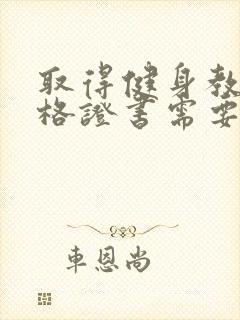 取得健身教
格證書需要
車恩尚